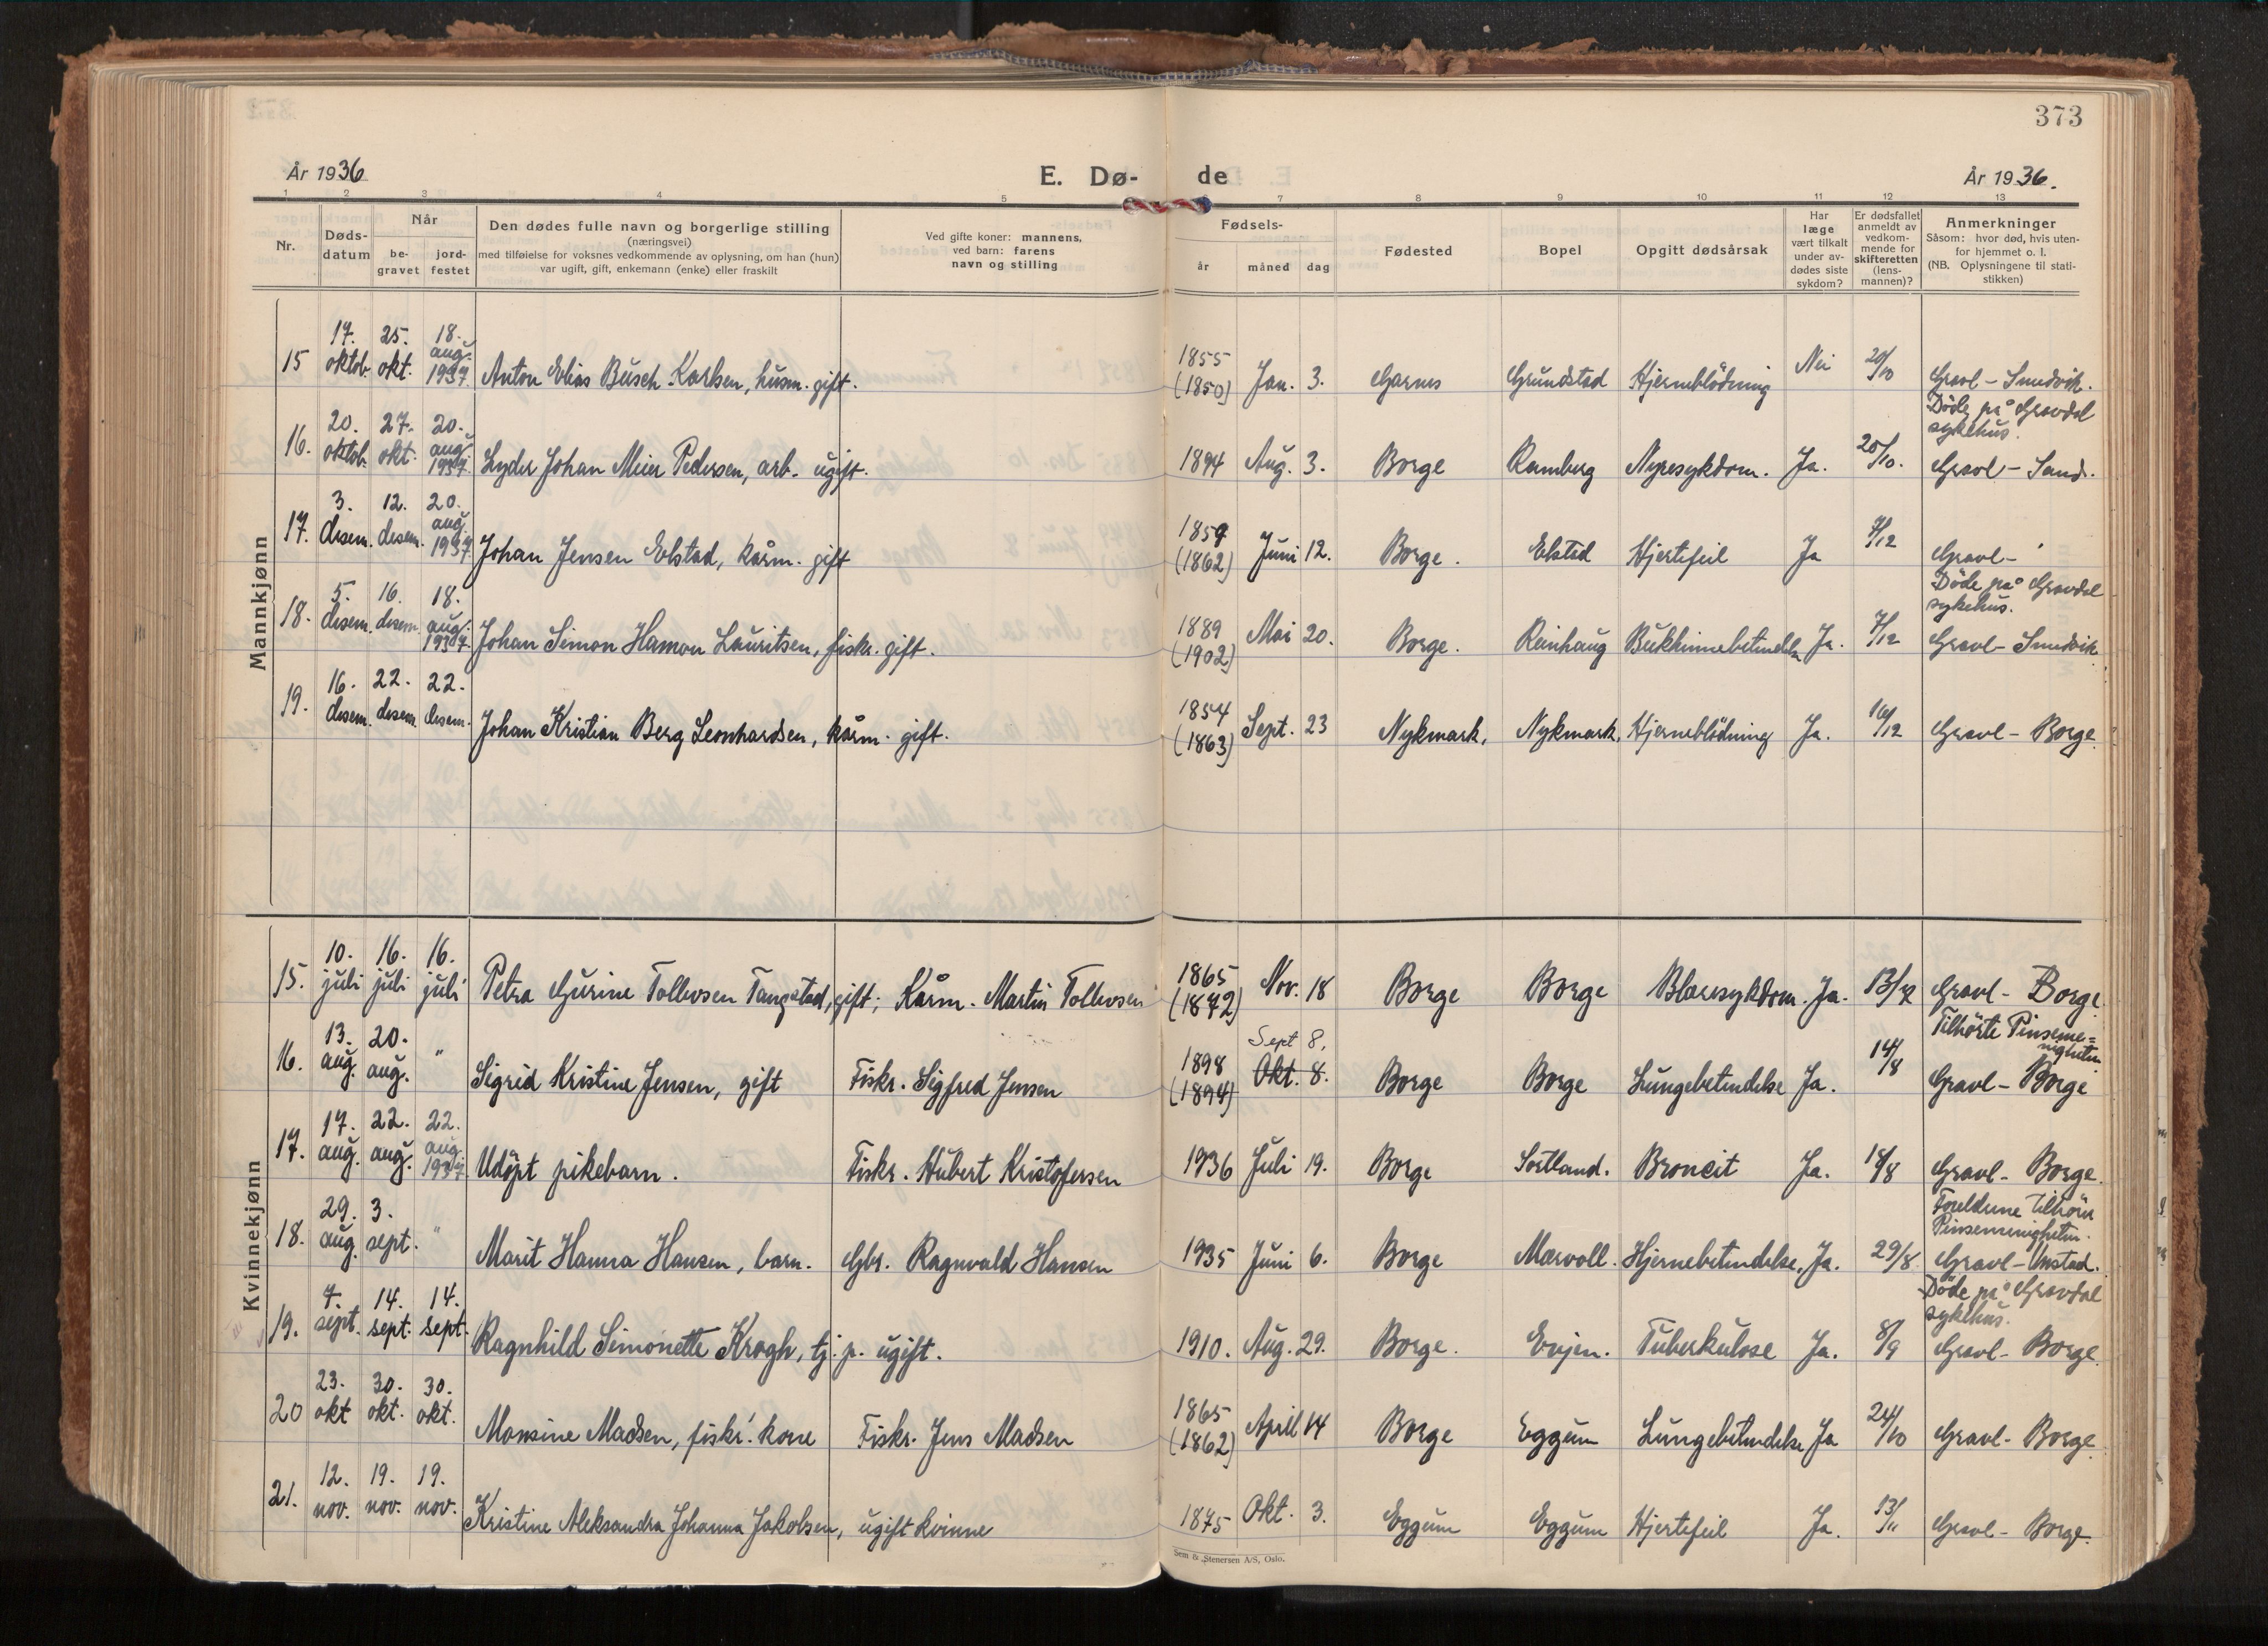 373
År 1936
E. Dø-
de
År 1936.
1 2 3 4 5 7 8 9 10 11 12 13
Nr.
Døds-
datum
Når
be-
gravet
jord-
festet
Den dødes fulle navn og borgerlige stilling
(næringsvei)
med tilføielse for voksnes vedkommende av oplysning, om han (hun)
var ugift, gift, enkemann (enke) eller fraskilt
Ved gifte koner: mannens,
ved barn: farens
navn og stilling
Fødsels-
år måned dag
Fødested
Bopel
Opgitt dødsårsak
Har
læge
vært tilkalt
under av-
dødes siste
sykdom?
Er dødsfallet
anmeldt av
vedkom-
mende for
skifteretten
(lens-
mannen)?
Anmerkninger
Såsom: hvor død, hvis uten-
for hjemmet o. l.
(NB. Oplysningene til stati-
stikken)
Mannkjønn
17. 25. 18.
oktob. okt. aug. 1937
15 Anton Elias Busch Karlsen, husm. gift. 1855 (1850) Jan. 3. Garnes Grundstad Hjerneblödning Nei 20/10 Gravl - Sundvik.
20. 27. 20.
oktob. okt. aug. 1937.
Döde på Gravdal
sykehus.
16. Lyder Johan Meier Pedersen, arb. ugift. 1894 Aug. 3. Borge Ramberg Nyresykdom. Ja. 20/10. Gravl - Sand.
3. 12. 20.
desem. desem. aug. 1937
17. Johan Jensen Elstad, kårm. gift 1859 (1862) Juni 12. Borge. Elstad Hjertefeil Ja 7/12 Gravl-
5. 16. 18.
desem. desem. aug. 1937.
Döde på Gravdal
sykehus.
18. Johan Simon Hamon Lauritsen, fiskr. gift. 1889 (1902) Mai 20. Borge. Reinhaug Bukhinnebetendelse Ja. 7/12 Gravl- Sundvik
16. 22. 22.
desem. desem. desem.
19. Johan Kristian Berg Leonhardsen, kårm. gift. 1854 (1863) Sept. 23 Nykmark, Nykmark, Hjerneblödning Ja. 16/12 Gravl - Borge
Kvinnekjønn
10. 16. 16.
juli juli juli
15. Petra Gurine Tollevsen Tangstad, gift; Kårm. Martin Tollevsen 1865 (1872) Nov. 18 Borge Borge Blæresykdom. Ja. 13/7 Gravl- Borge
13. 20.
aug. aug. "
Sept 8.
Tilhörte Pinseme=
nigheten
16. Sigrid Kristine Jensen, gift Fiskr. Sigfred Jensen 1898 (1894) Okt. 8. Borge Borge Lungebetendelse Ja. 14/8 Gravl- Borge
17. 22. 22.
aug. aug. aug. 1937.
17. Udöpt pikebarn. Fiskr. Hubert Kristofersen 1936 Juli 19. Borge Sortland. Broncit Ja. 18/8 Gravl- Borge.
29. 3.
aug. sept. "
Foreldrene tilhörer
Pinsemenigheten.
18. Marit Hanna Hansen, barn. Gbr. Ragnvald Hansen 1935 Juni 6. Borge Mærvoll. Hjernebetendelse, Ja. 29/8. Gravl-Unstad.
7. 14. 14.
sept. sept. sept.
Döde på Gravdal
sykehus.
19. Ragnhild Simonette Krogh, tj. p. ugift. 1910. Aug. 29. Borge. Evjen. Tuberkulose Ja. 8/9 Gravl- Borge
23. 30. 30.
okt okt. okt.
20 Monsine Madsen, fiskr. kone Fiskr. Jens Madsen 1865 (1862) April 14 Borge Eggum Lungebetendelse Ja 24/10 Gravl- Borge
12. 19. 19.
nov. nov. nov.
21. Kristine Aleksandra Johanna Jakobsen, ugift kvinne 1875 Okt. 3. Eggum Eggum Hjertefeil Ja. 13/11 Gravl- Borge.
Sem & Stenersen A/S, Oslo.